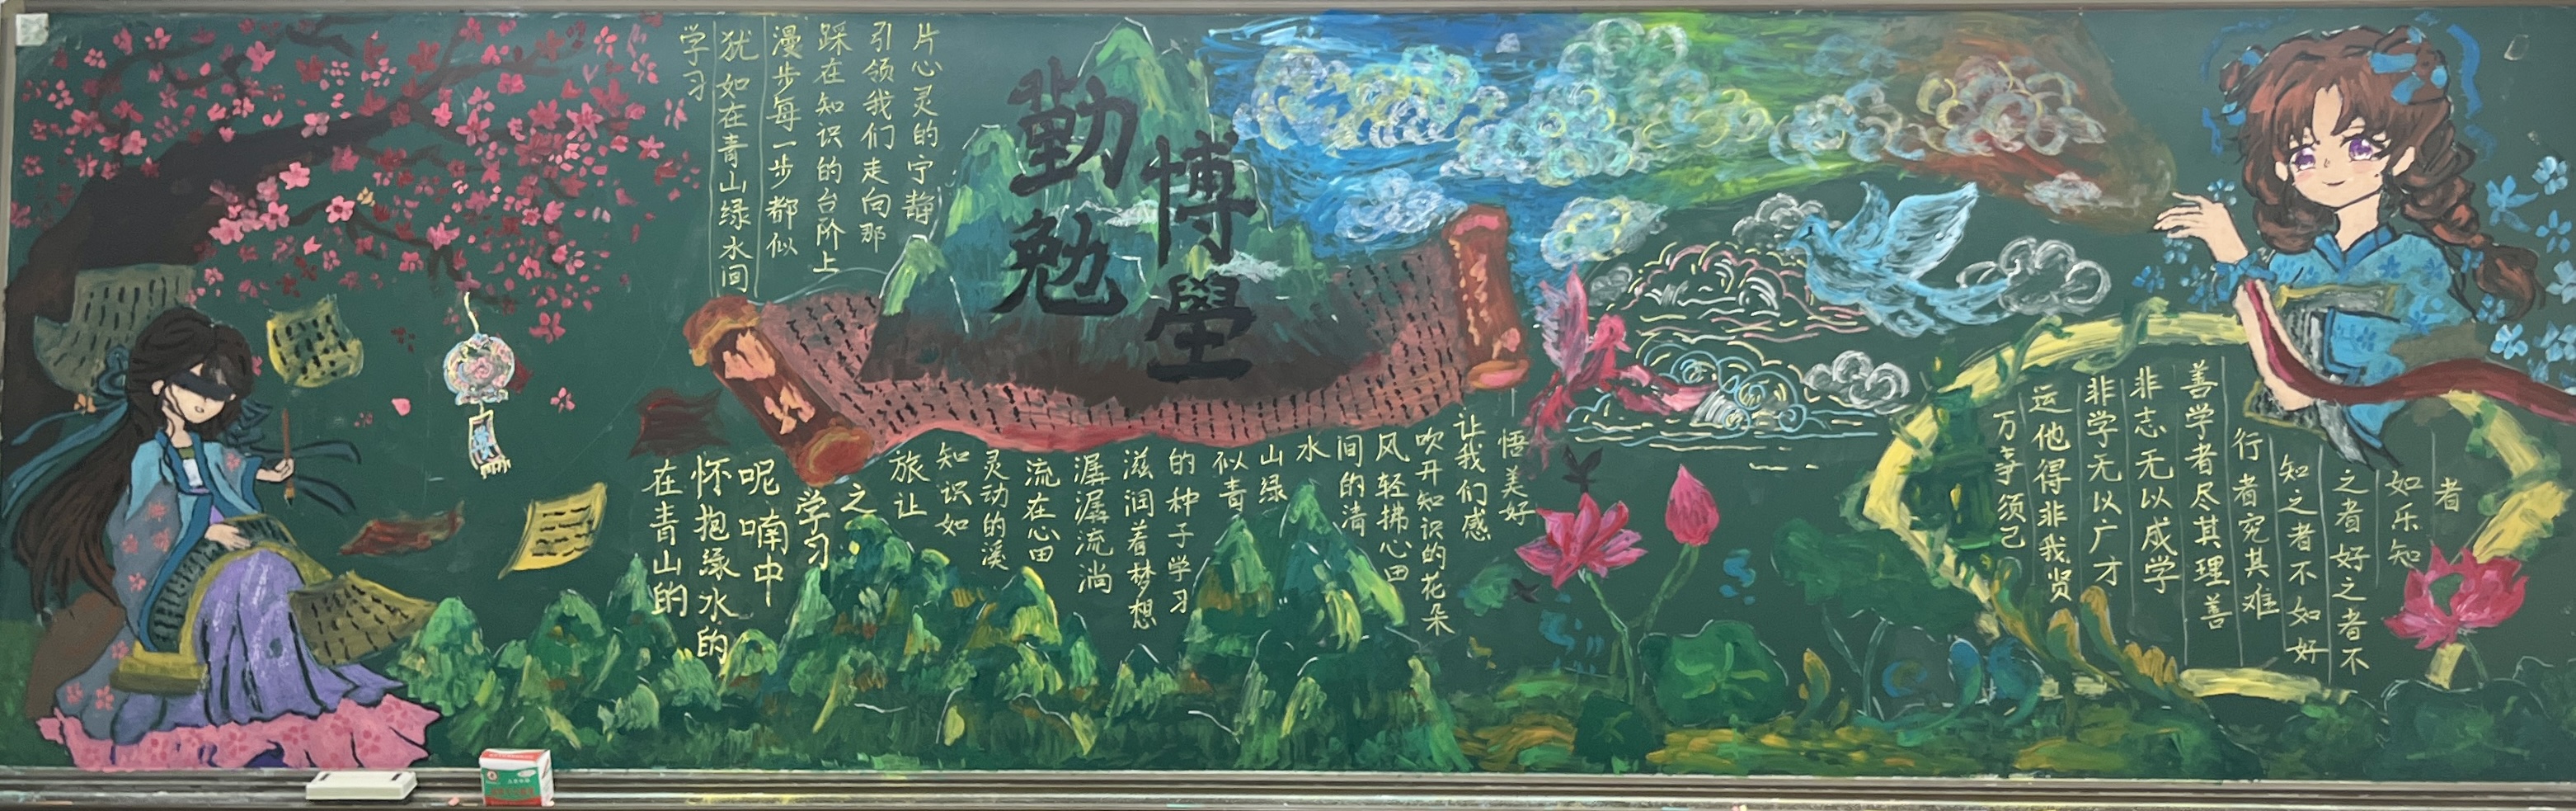 学习
犹如在青山绿水间
漫步每一步都似
踩在知识的台阶上
引领我们走向那
片心灵的宁静
勤勉
博學
在青山的
怀抱绿水的
呢喃中
学习
之
旅让
知识如
灵动的溪
流在心田
潺潺流淌
滋润着梦想
的种子学习
似青
山绿
水
间的清
风轻拂心田
吹开知识的花朵
让我们感
悟美好
万事须己
运他得非我贤
非学无以广才
非志无以成学
善学者尽其理善
行者究其难
知之者不如好
之者好之者不
如乐知
者